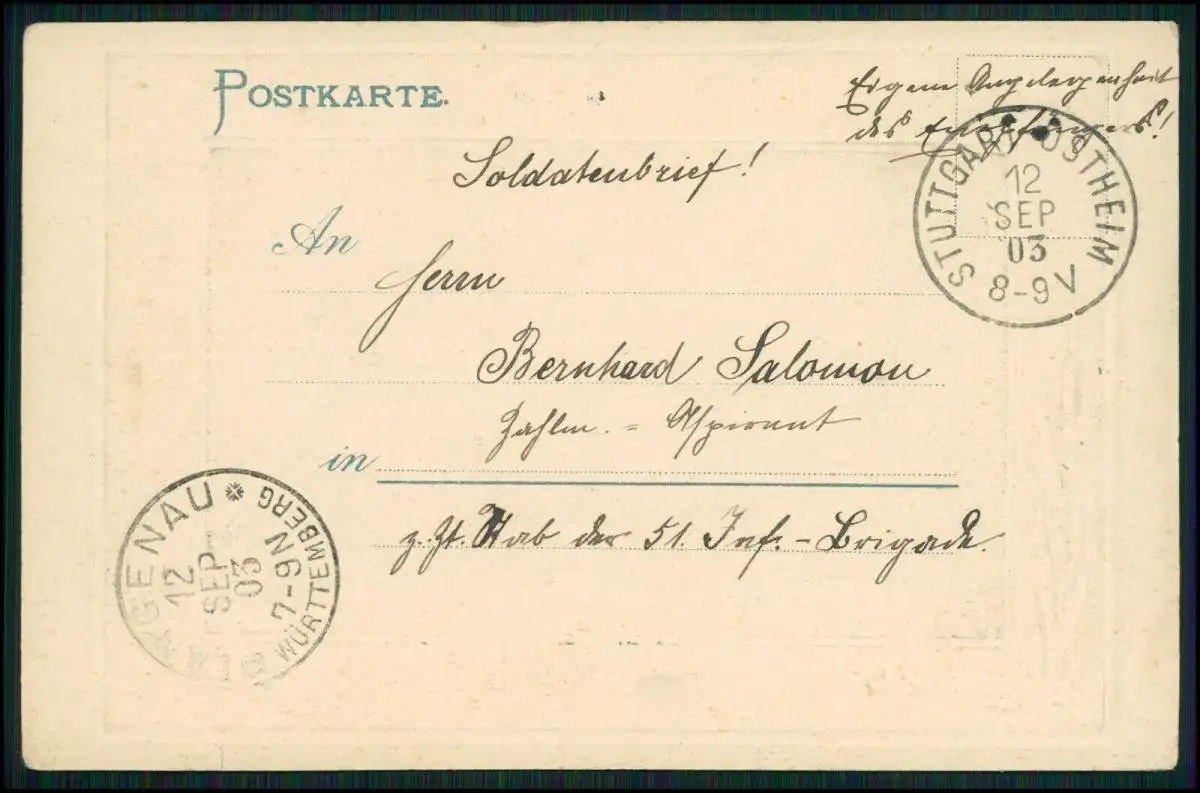 POSTKARTE.
Eigene Angelegenheit
des Empfängers!
Soldatenbrief!
STUTTGART OSTHEIM
12
SEP
03
8-9 V
An
Herrn
Bernhard Salomon
Zahlm. = Aspirant
in
z. Zt. Stab der 51. Inf. - Brigade.
GENAU * WÜRTTEMBERG
12
SEP
03
7-9 N